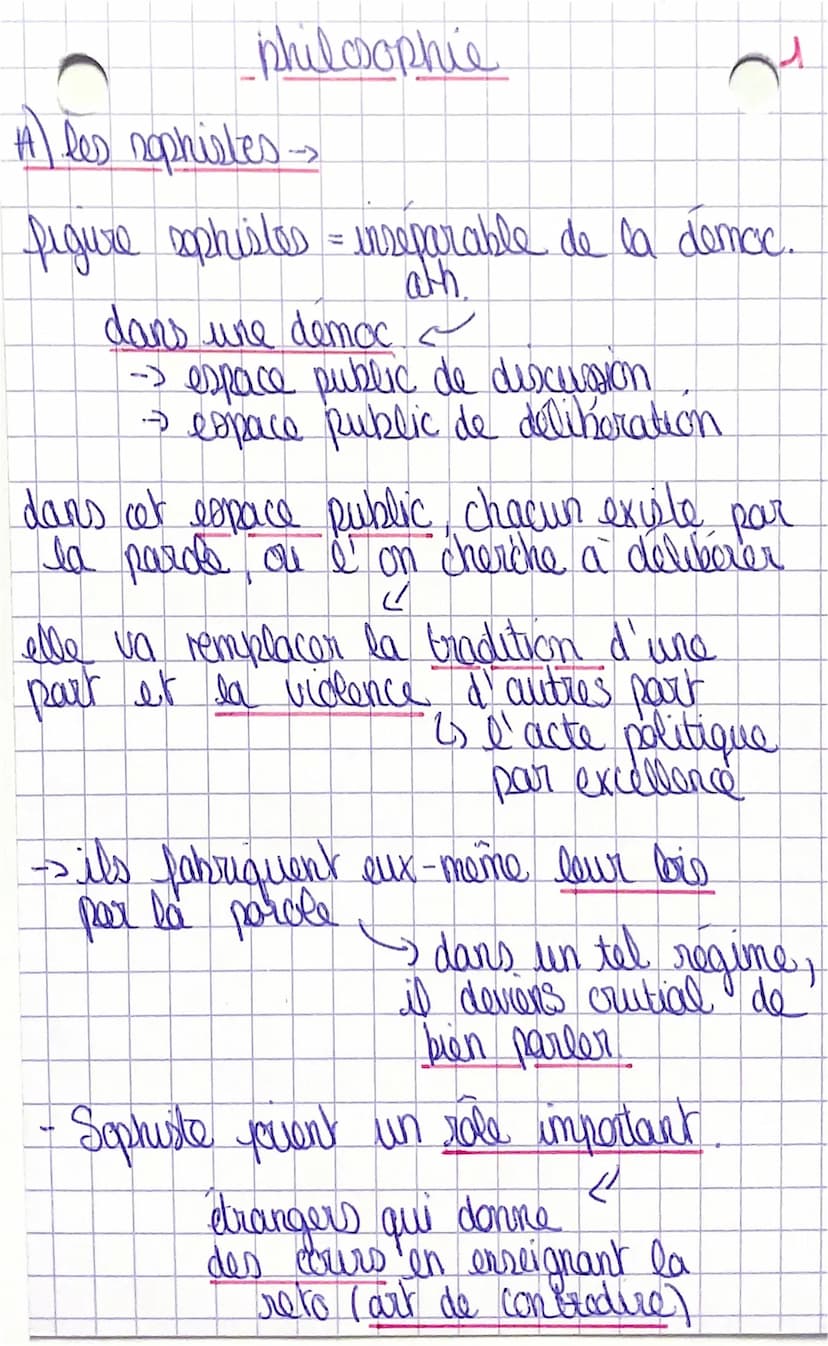 philosophie
1
A) les sophistes →
figure sophistes = inséparable de la démoc.
ath.
dans une démoc.
→ espace public de discussion
→ espace public de délibération
dans cet espace public, chacun existe par
la parole, ou l'on cherche à délibérer
elle va remplacer la tradition d'une
part et la violence d'autres part
↳ l'acte politique
par excellence
→ ils fabriquent eux-même leur lois
par la parole
→ dans un tel régime,
il deviens crutial de
bien parler.
- Sophiste jouent un rôle important.
étrangers qui donne
des cours en enseignant la
reto (art de contredire)